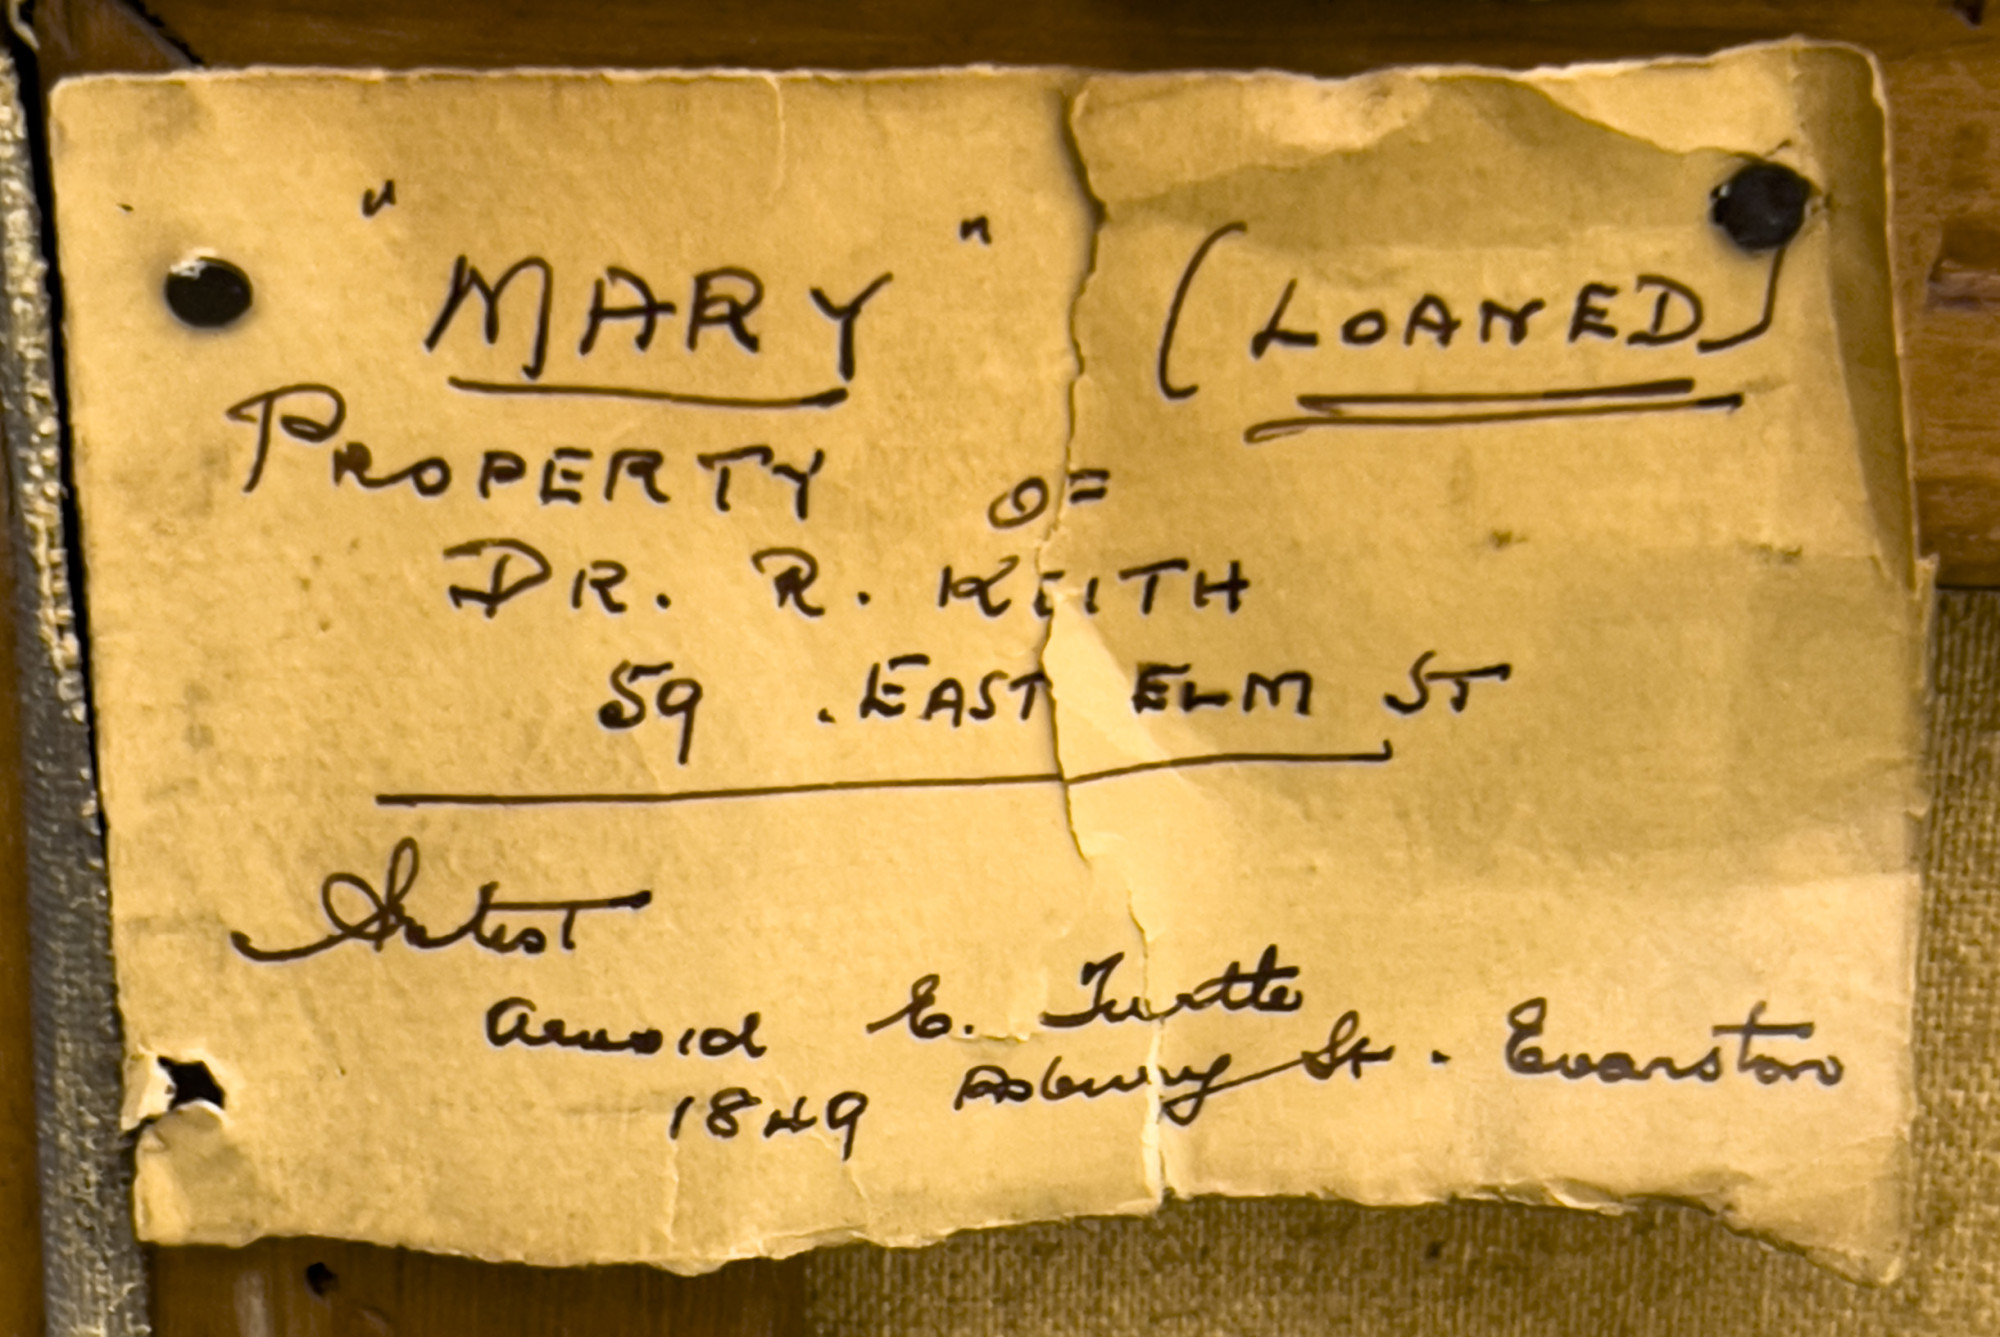 "MARY" (LOANED)
PROPERTY OF
DR. R. KEITH
59 . EAST ELM ST
Artist
Arnold E. Turtle
1849 Asbury St. Evanston